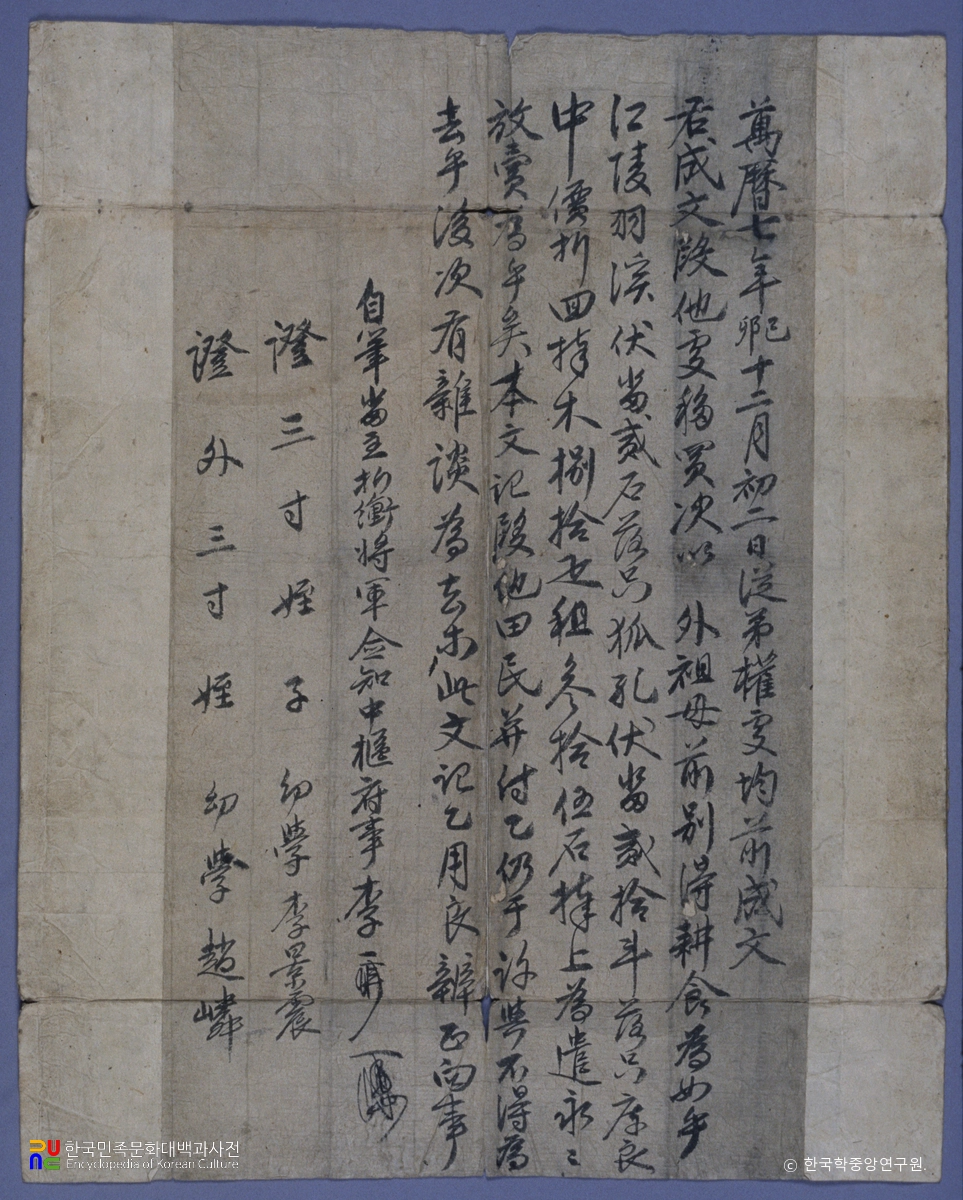 萬曆七年己卯十二月初二日從弟權處均前成文
右成文段他處移買次以 外祖母前別得耕食爲如乎
江陵羽溪伏畓貳石落只狐孔伏畓貳拾斗落只庫良
中價折四捧木捌拾疋租參拾伍石捧上爲遣永〻
放賣爲乎矣本文記段他田民幷付乙仍于許與不得爲
去乎後次有雜談爲去等此文記乙用良辨正向事
自筆畓主折衝將軍僉知中樞府事李
證三寸姪子幼學李景震
證外三寸姪幼學趙嶙
한국민족문화대백과사전
Encyclopedia of Korean Culture
© 한국학중앙연구원.